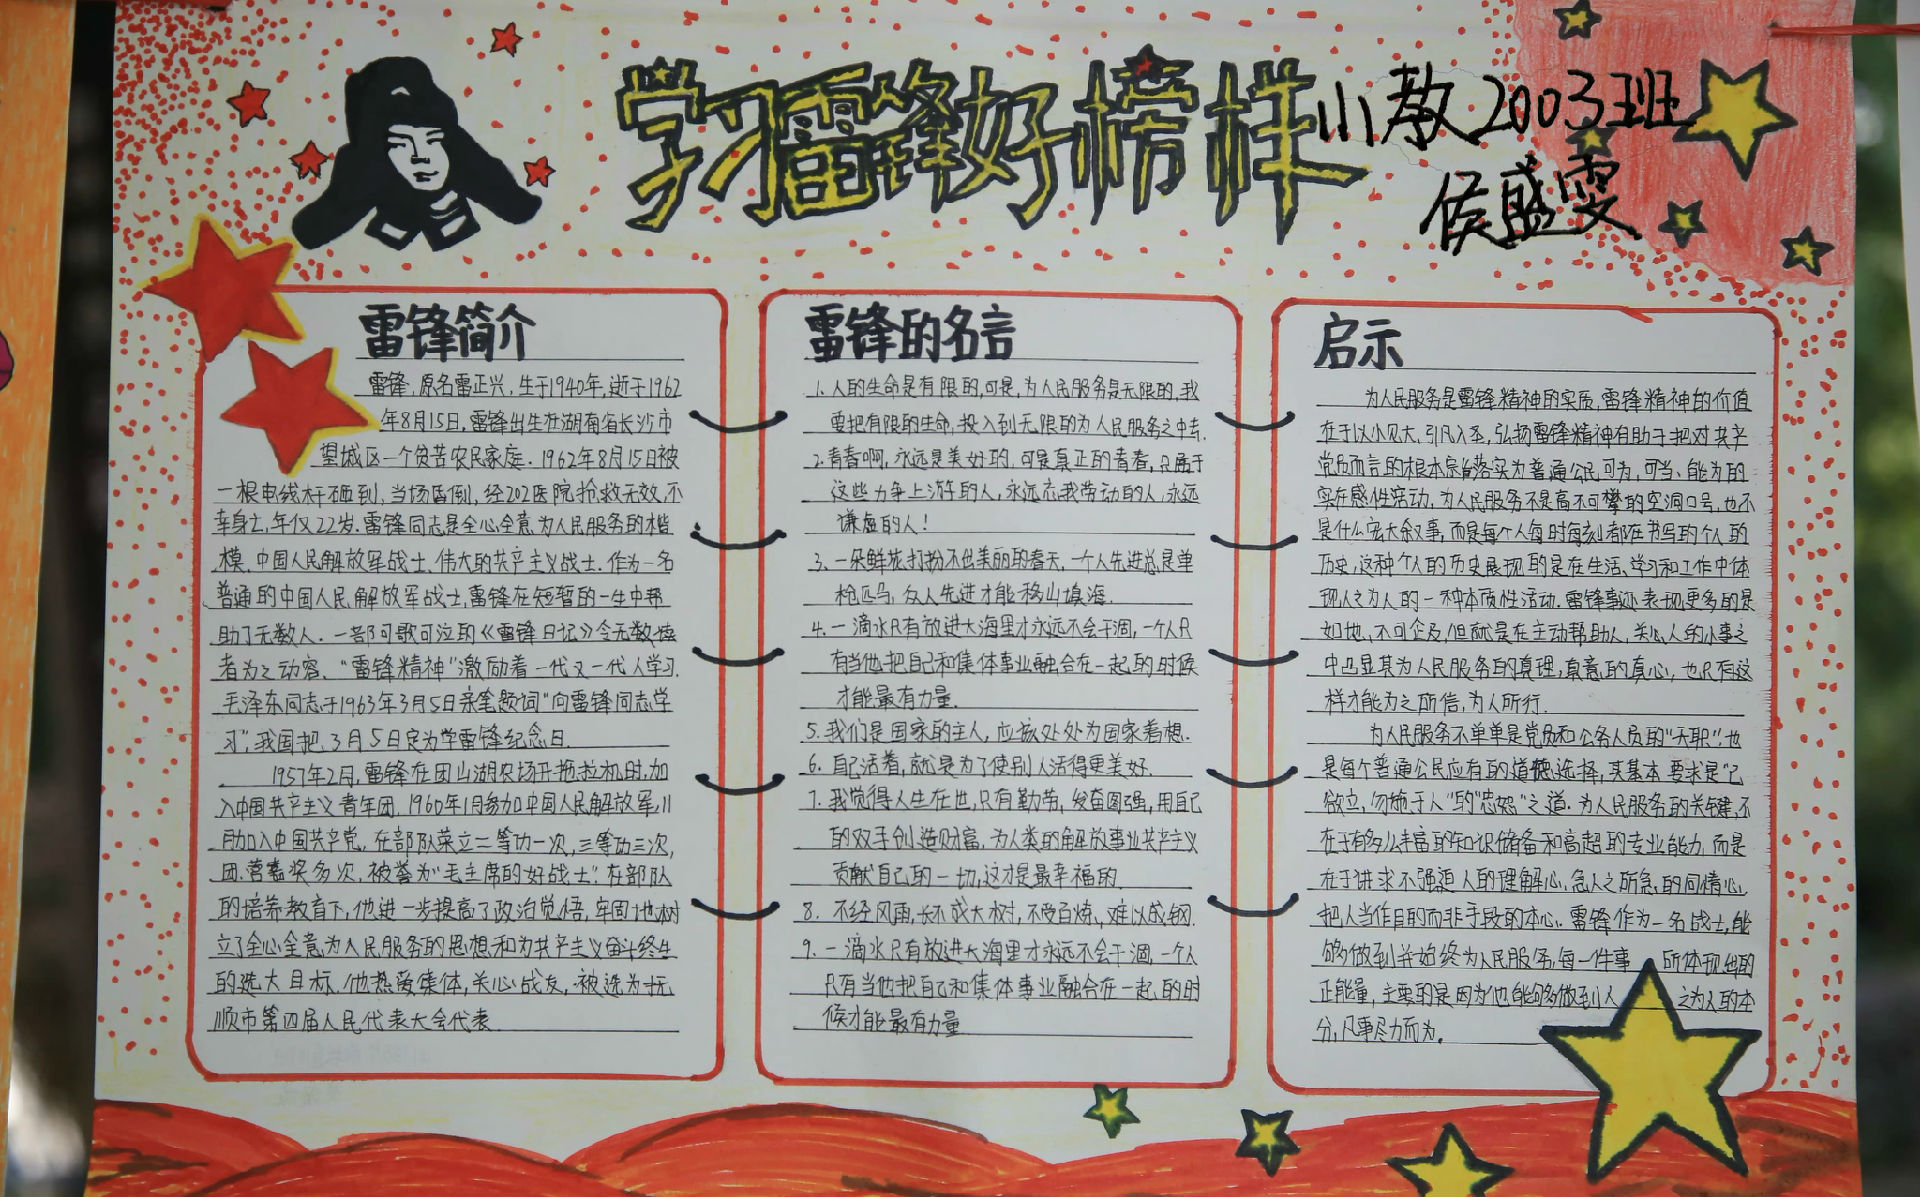 学习雷锋好榜样
小教2003班
侯盛雯
雷锋简介
雷锋,原名雷正兴,生于1940年,逝于1962
年8月15日,雷锋出生在湖南省长沙市
望城区一个贫苦农民家庭.1962年8月15日被
一根电线木干砸到,当场昏倒,经202医院抢救无效,不
幸身亡,年仅22岁.雷锋同志是全心全意为人民服务的楷
模,中国人民解放军战士,伟大的共产主义战士.作为一名
普通的中国人民解放军战士,雷锋在短暂的一生中帮
助了无数人.一部可歌可泣的《雷锋日记》令无数读
者为之动容、“雷锋精神”激励着一代又一代人学习.
毛泽东同志于1963年3月5日亲笔题词“向雷锋同志学
习”,我国把3月5日定为学雷锋纪念日.
1957年2月,雷锋在团山湖农场开拖拉机时,加
入中国共产主义青年团.1960年1月参加中国人民解放军,11
月加入中国共产党,在部队荣立二等功一次,三等功三次,
团.营嘉奖多次,被誉为“毛主席的好战士”.在部队
的培养教育下,他进一步提高了政治觉悟,牢固地树
立了全心全意为人民服务的思想和为共产主义奋斗终生
的远大目标,他热爱集体,关心战友,被选为抚
顺市第四届人民代表大会代表.
雷锋的名言
1.人的生命是有限的,可是,为人民服务是无限的,我
要把有限的生命,投入到无限的为人民服务之中去.
2.青春啊,永远是美好的,可是真正的青春,只属于
这些力争上游的人,永远忘我劳动的人,永远
谦虚的人!
3.一朵鲜花打扮不出美丽的春天,一个人先进总是单
枪匹马,众人先进才能移山填海.
4.一滴水只有放进大海里才永远不会干涸,一个人只
有当他把自己和集体事业融合在一起的时候
才能最有力量.
5.我们是国家的主人,应该处处为国家着想.
6.自己活着,就是为了使别人活得更美好.
7.我觉得人生在世,只有勤劳,发奋图强,用自己
的双手创造财富,为人类的解放事业共产主义
贡献自己的一切,这才是最幸福的.
8.不经风雨,长不成大树,不受百炼,难以成钢.
9.一滴水只有放进大海里才永远不会干涸,一个人
只有当他把自己和集体事业融合在一起的时
候才能最有力量
启示
为人民服务是雷锋精神的实质,雷锋精神的价值
在于以小见大,引凡入圣,弘扬雷锋精神有助于把对共产
党员而言的根本宗旨落实为普通公民可为,可当、能为的
实在感性活动,为人民服务不是高不可攀的空洞口号,也不
是什么宏大叙事,而是每个人每时每刻都在书写的个人的
历史,这种个人的历史展现的是在生活、学习和工作中体
现人之为人的一种本质性活动.雷锋事迹表现更多的是
如此,不可企及,但就是在主动帮助人,关心人的小事之
中凸显其为人民服务的真理,真意的真心,也只有这
样才能为之所信,为人所行.
为人民服务不单单是党员和公务人员的“天职”,也
是每个普通公民应有的道德选择,其基本要求是“己
欲立,勿施于人”的“忠恕”之道.为人民服务的关键,不
在于有多么丰富的知识储备和高超的专业能力,而是
在于讲求不强迫人的理解心,急人之所急的同情心,
把人当作目的而非手段的本心.雷锋作为一名战士,能
够做到并始终为人民服务,每一件事 所体现出的
正能量,主要的是因为他能够做到人 之为人的本
分,凡事尽力而为.